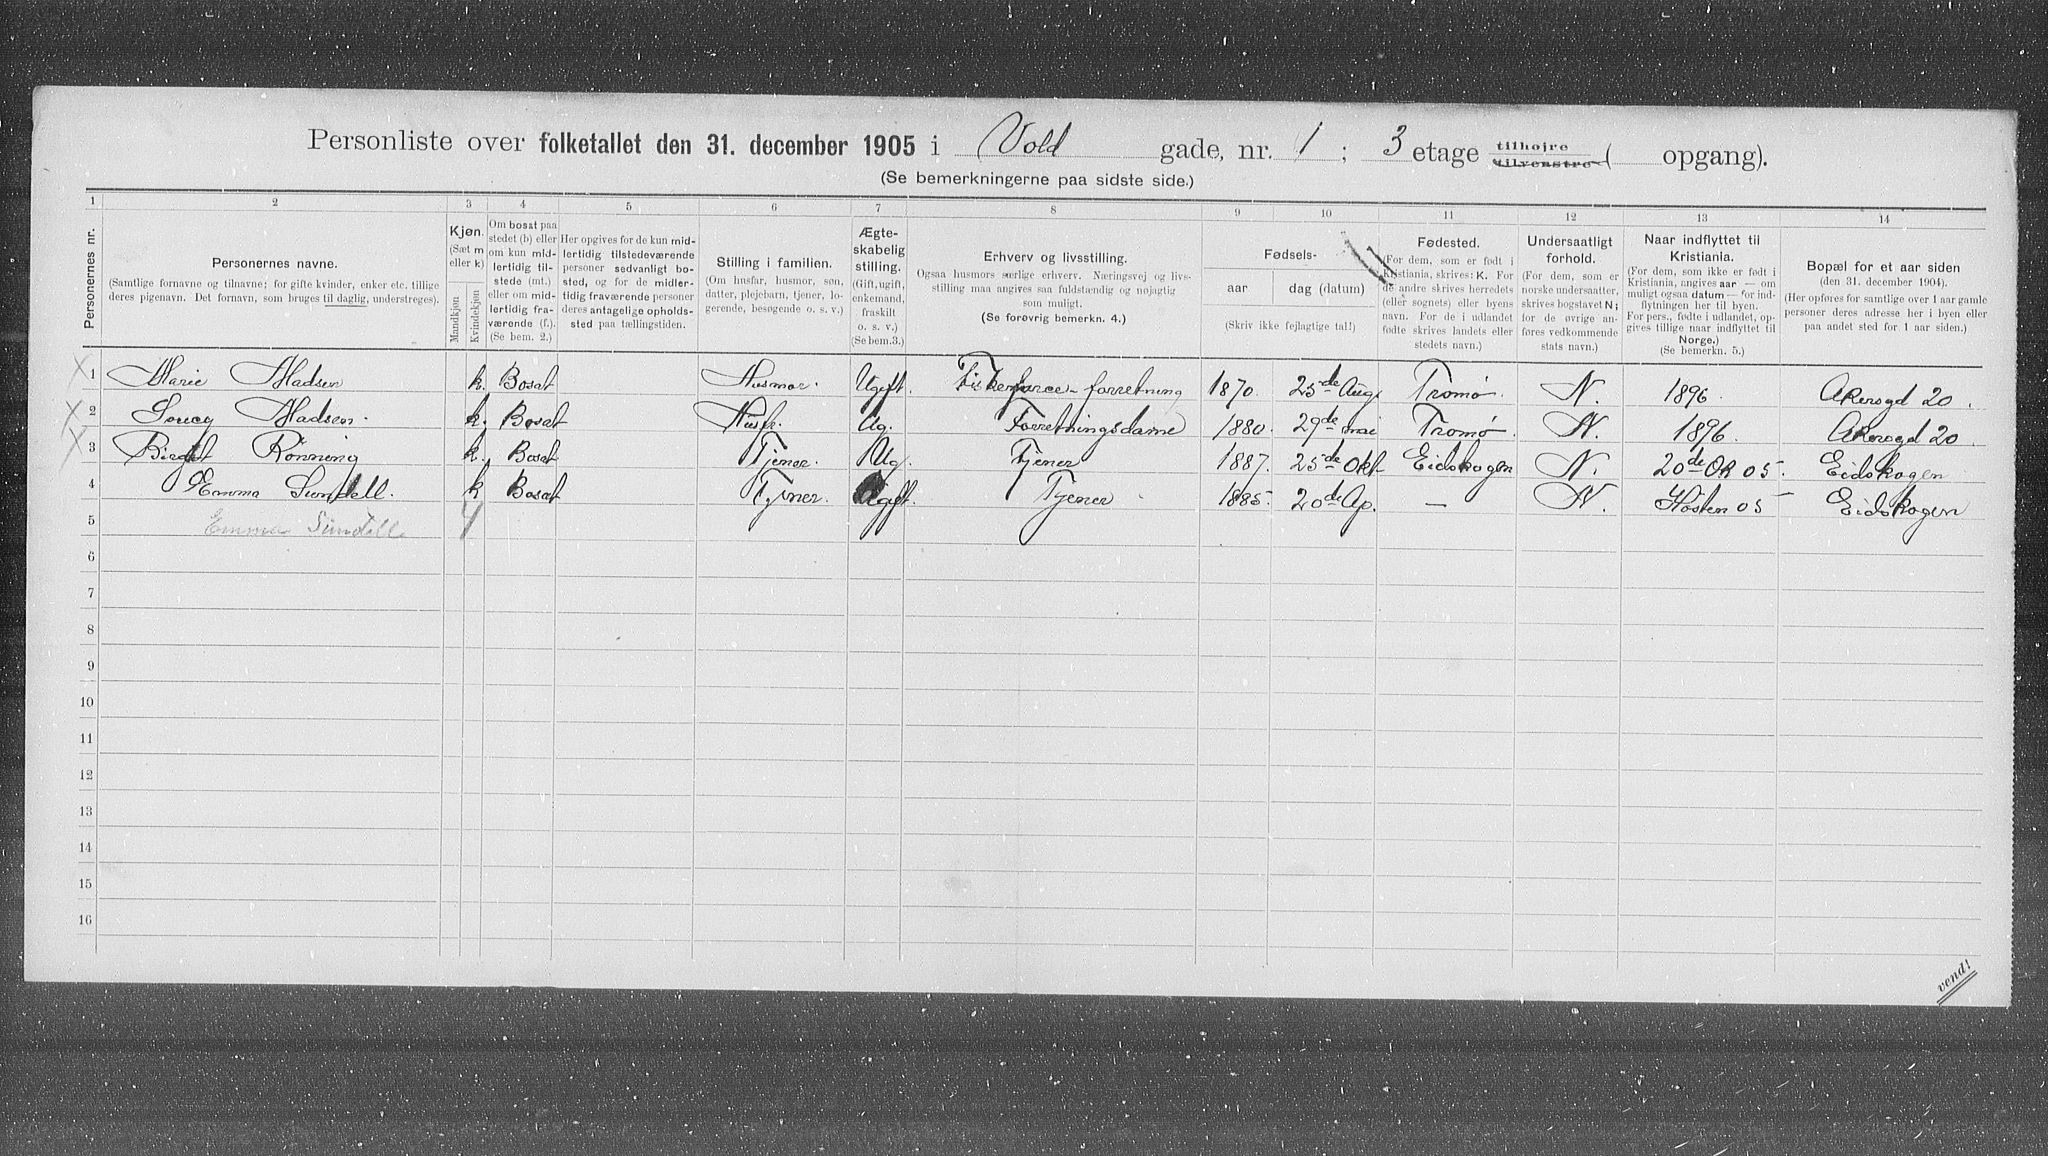 Personliste over folketallet den 31. december 1905 i Vold gade, nr. 1 ; 3 etage tilhøjre tilvenstre ( opgang).
(Se bemærkningerne paa sidste side.)
1 2 3 4 5 6 7 8 9 10 11 12 13 14
Personernes nr.
Personernes navne.
(Samtlige fornavne og tilnavne; for gifte kvinder, enker etc. tillige
deres pigenavn. Det fornavn, som bruges til daglig, understreges).
Kjøn.
(Sæt m
eller k)
Mandkjøn
Kvindekjøn
Om bosat paa
stedet (b) eller
om kun mid-
lertidig til-
stede (mt.)
eller om mid-
lertidig fra-
værende (f.).
(Se bem. 2.)
Her opgives for de kun mid-
lertidig tilstedeværende
personer sedvanligt bo-
sted, og for de midler-
tidig fraværende personer
deres antagelige opholds-
sted paa tællingstiden.
Stilling i familien.
(Om husfar, husmor, søn,
datter, plejebarn, tjener, lo-
gerende, besøgende o. s. v.)
Ægte-
skabelig
stilling.
(Gift, ugift,
enkemand,
fraskilt
o. s. v.)
(Se bem.3.)
Erhverv og livsstilling.
Ogsaa husmors særlige erhverv. Næringsvej og livs-
stilling maa angives saa fuldstændig og nøjagtig
som muligt.
(Se forøvrig bemerkn. 4.)
Fødsels-
aar
dag (datum)
(Skriv ikke fejlagtige tal!)
Fødested.
(For dem, som er født i
Kristiania, skrives: K. For
de andre skrives herredets
(eller sognets) eller byens
navn. For de i udlandet
fødte skrives landets eller
stedets navn.)
Undersaatligt
forhold.
(For dem, som er
norske undersaatter,
skrives bogstavet N;
for de øvrige an-
føres vedkommende
stats navn.)
Naar indflyttet til
Kristiania.
(For dem, som ikke er født i
Kristiania, angives aar — om
muligt ogsaa datum — for ind-
flytningen her til byen.
For pers., fødte i udlandet, op-
gives tillige naar indflyttet til
Norge.)
(Se bemerkn. 5.)
Bopæl for et aar siden
(den 31. december 1904).
(Her opføres for samtlige over 1 aar gamle
personer deres adresse her i byen eller
paa andet sted for 1 aar siden.)
1 Marie Madsen k. Bosat Husmor. Ugift. forretning 1870. 25de Aug. Tromø. N. 1896. Akersgd 20.
2 Madsen. k. Bosat Husfr. Ug. Forretningsdame 1880. 29de mai Tromø. N. 1896. Akersgd 20.
3 Birgit Rönning k. Bosat Tjener. Ug. Tjener 1887. 25de Okt Eidskogen N. 20de Ok 05. Eidskogen
4 Emma Sundell. k Bosat Tjener. Ugift. Tjener 1885. 20de Ap. — N. Høsten 05 Eidskogen
5 Emma Sundell
6
7
8
9
10
11
12
13
14
15
16
vend!